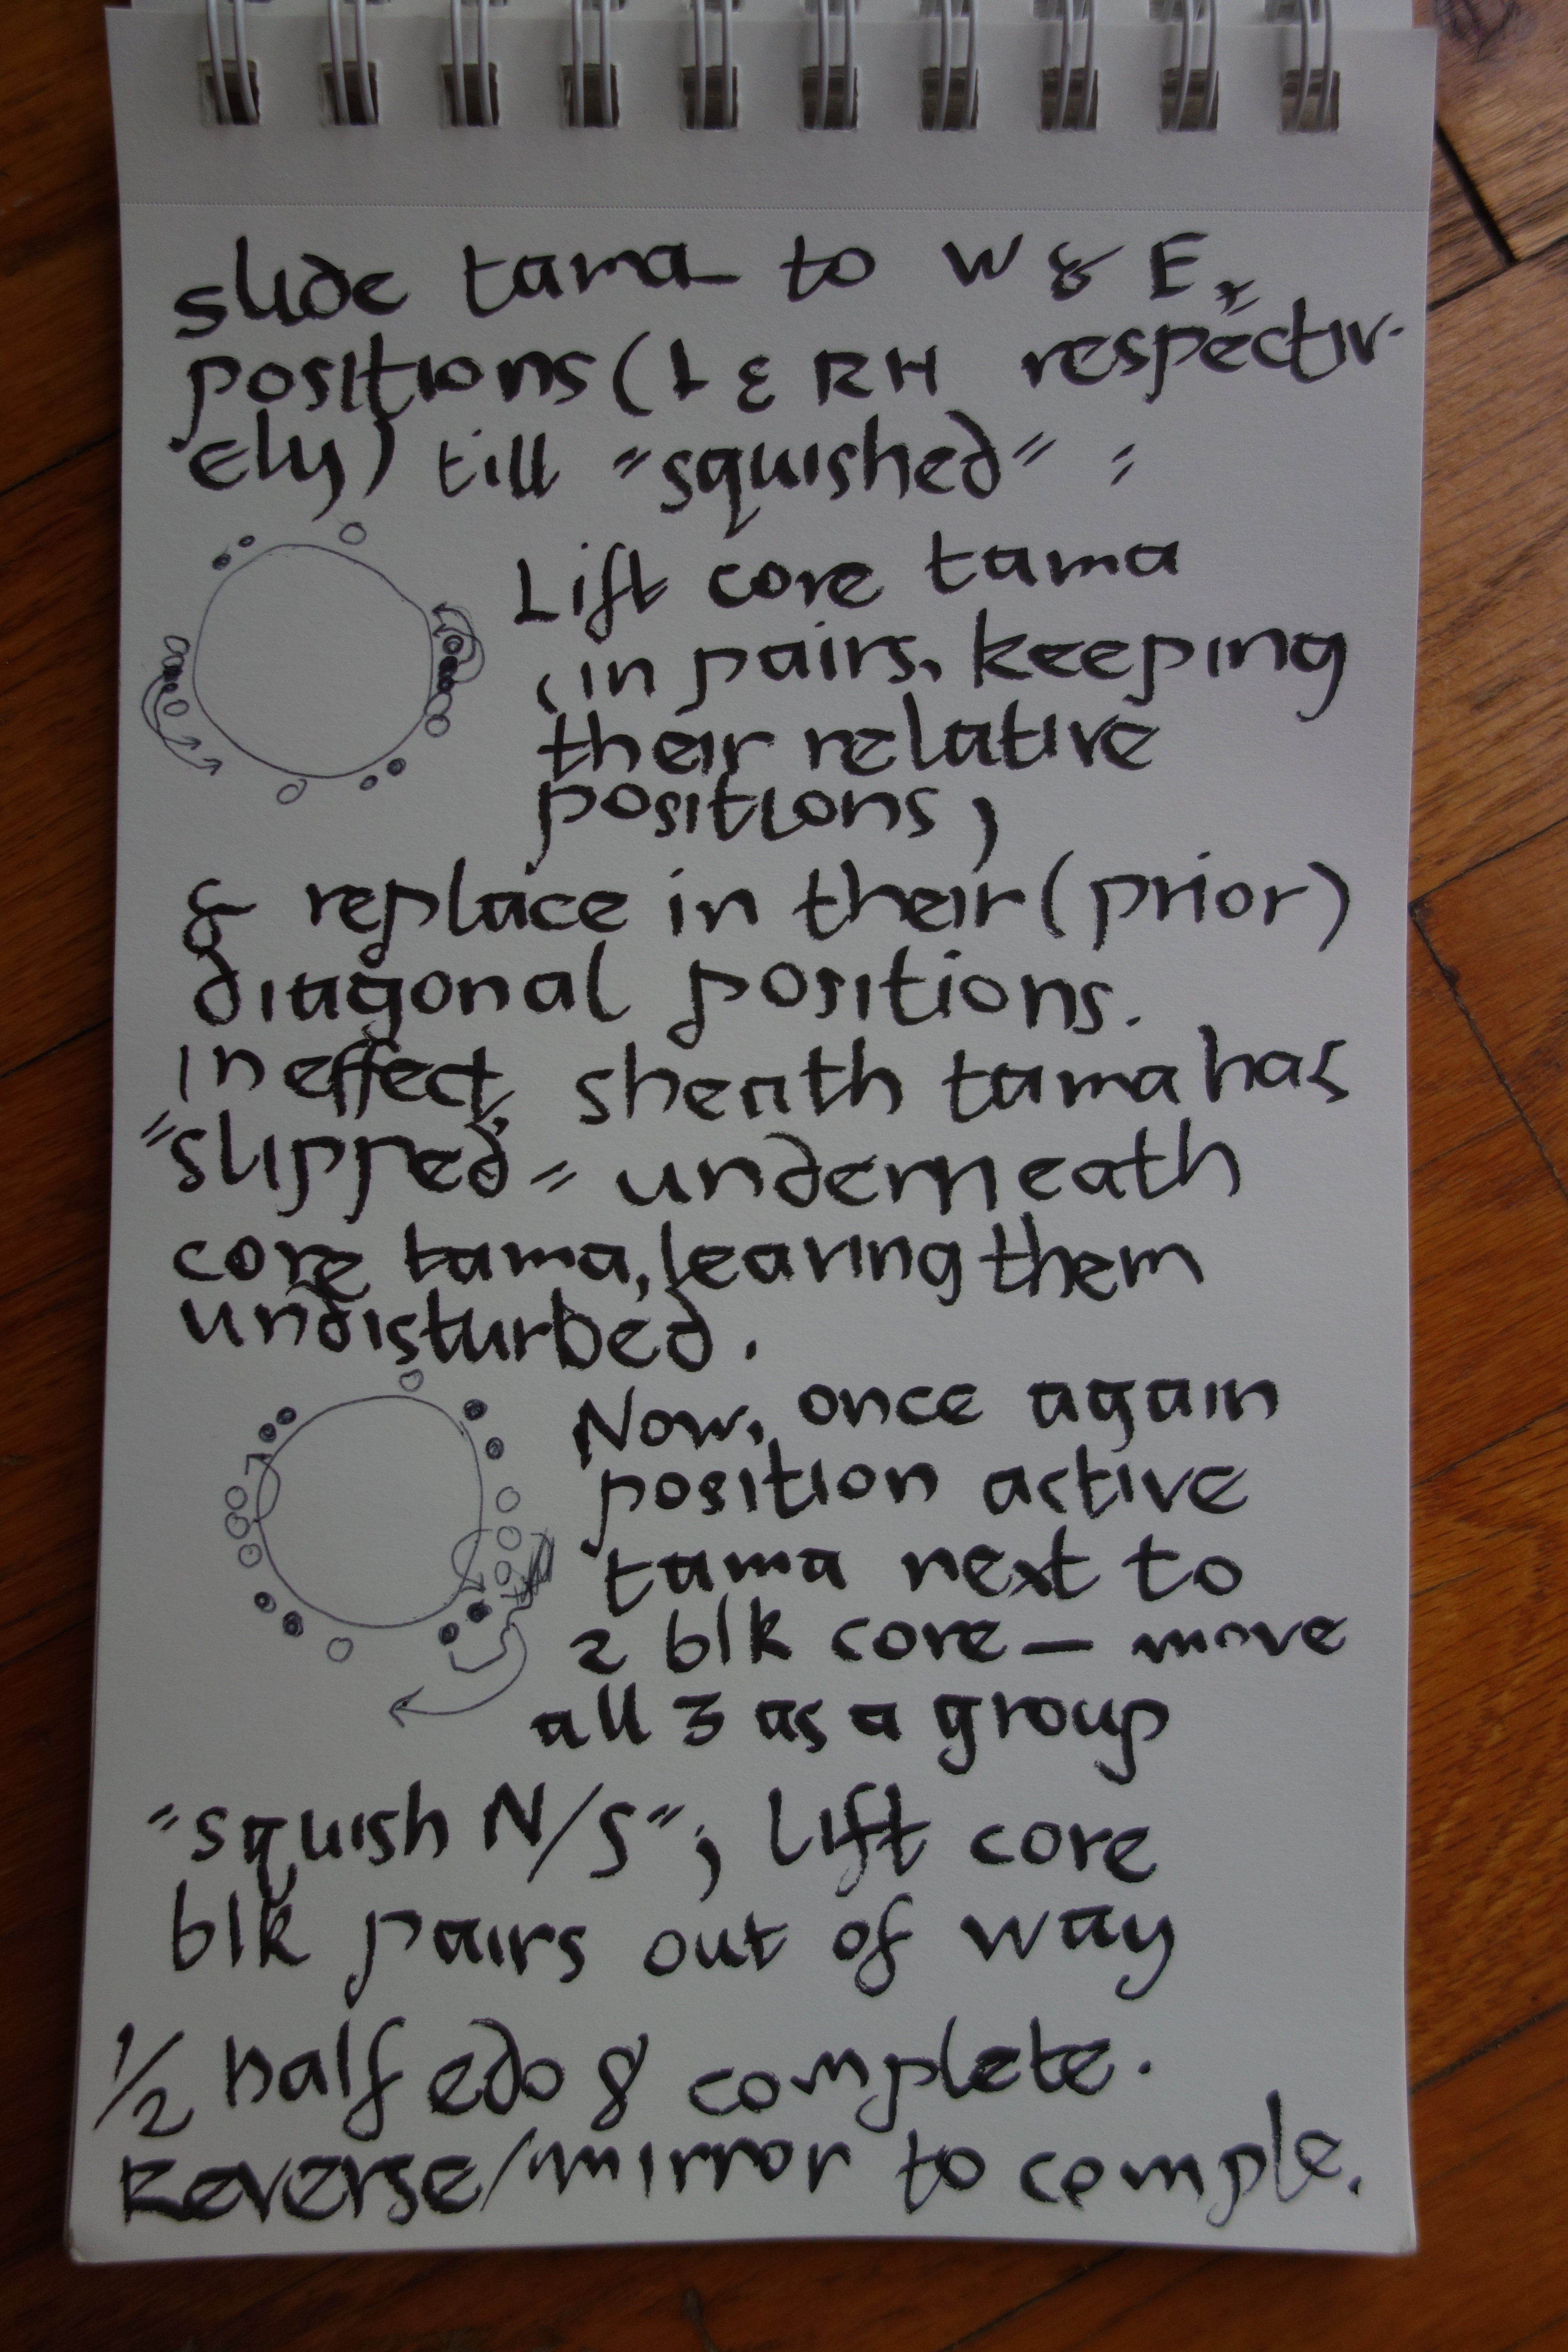 slide tama to W & E,
positions (L & RH respectiv-
ely) till "squished" =
Lift core tama
in pairs, keeping
their relative
positions,
& replace in their (prior)
diagonal positions.
in effect, sheath tama has
"slipped" underneath
core tama, leaving them
undisturbed.
Now, once again
position active
tama next to
2 blk core — move
all 3 as a group
"squish N/S"; lift core
blk pairs out of way
1/2 half edo 8 complete.
Reverse/mirror to comple.